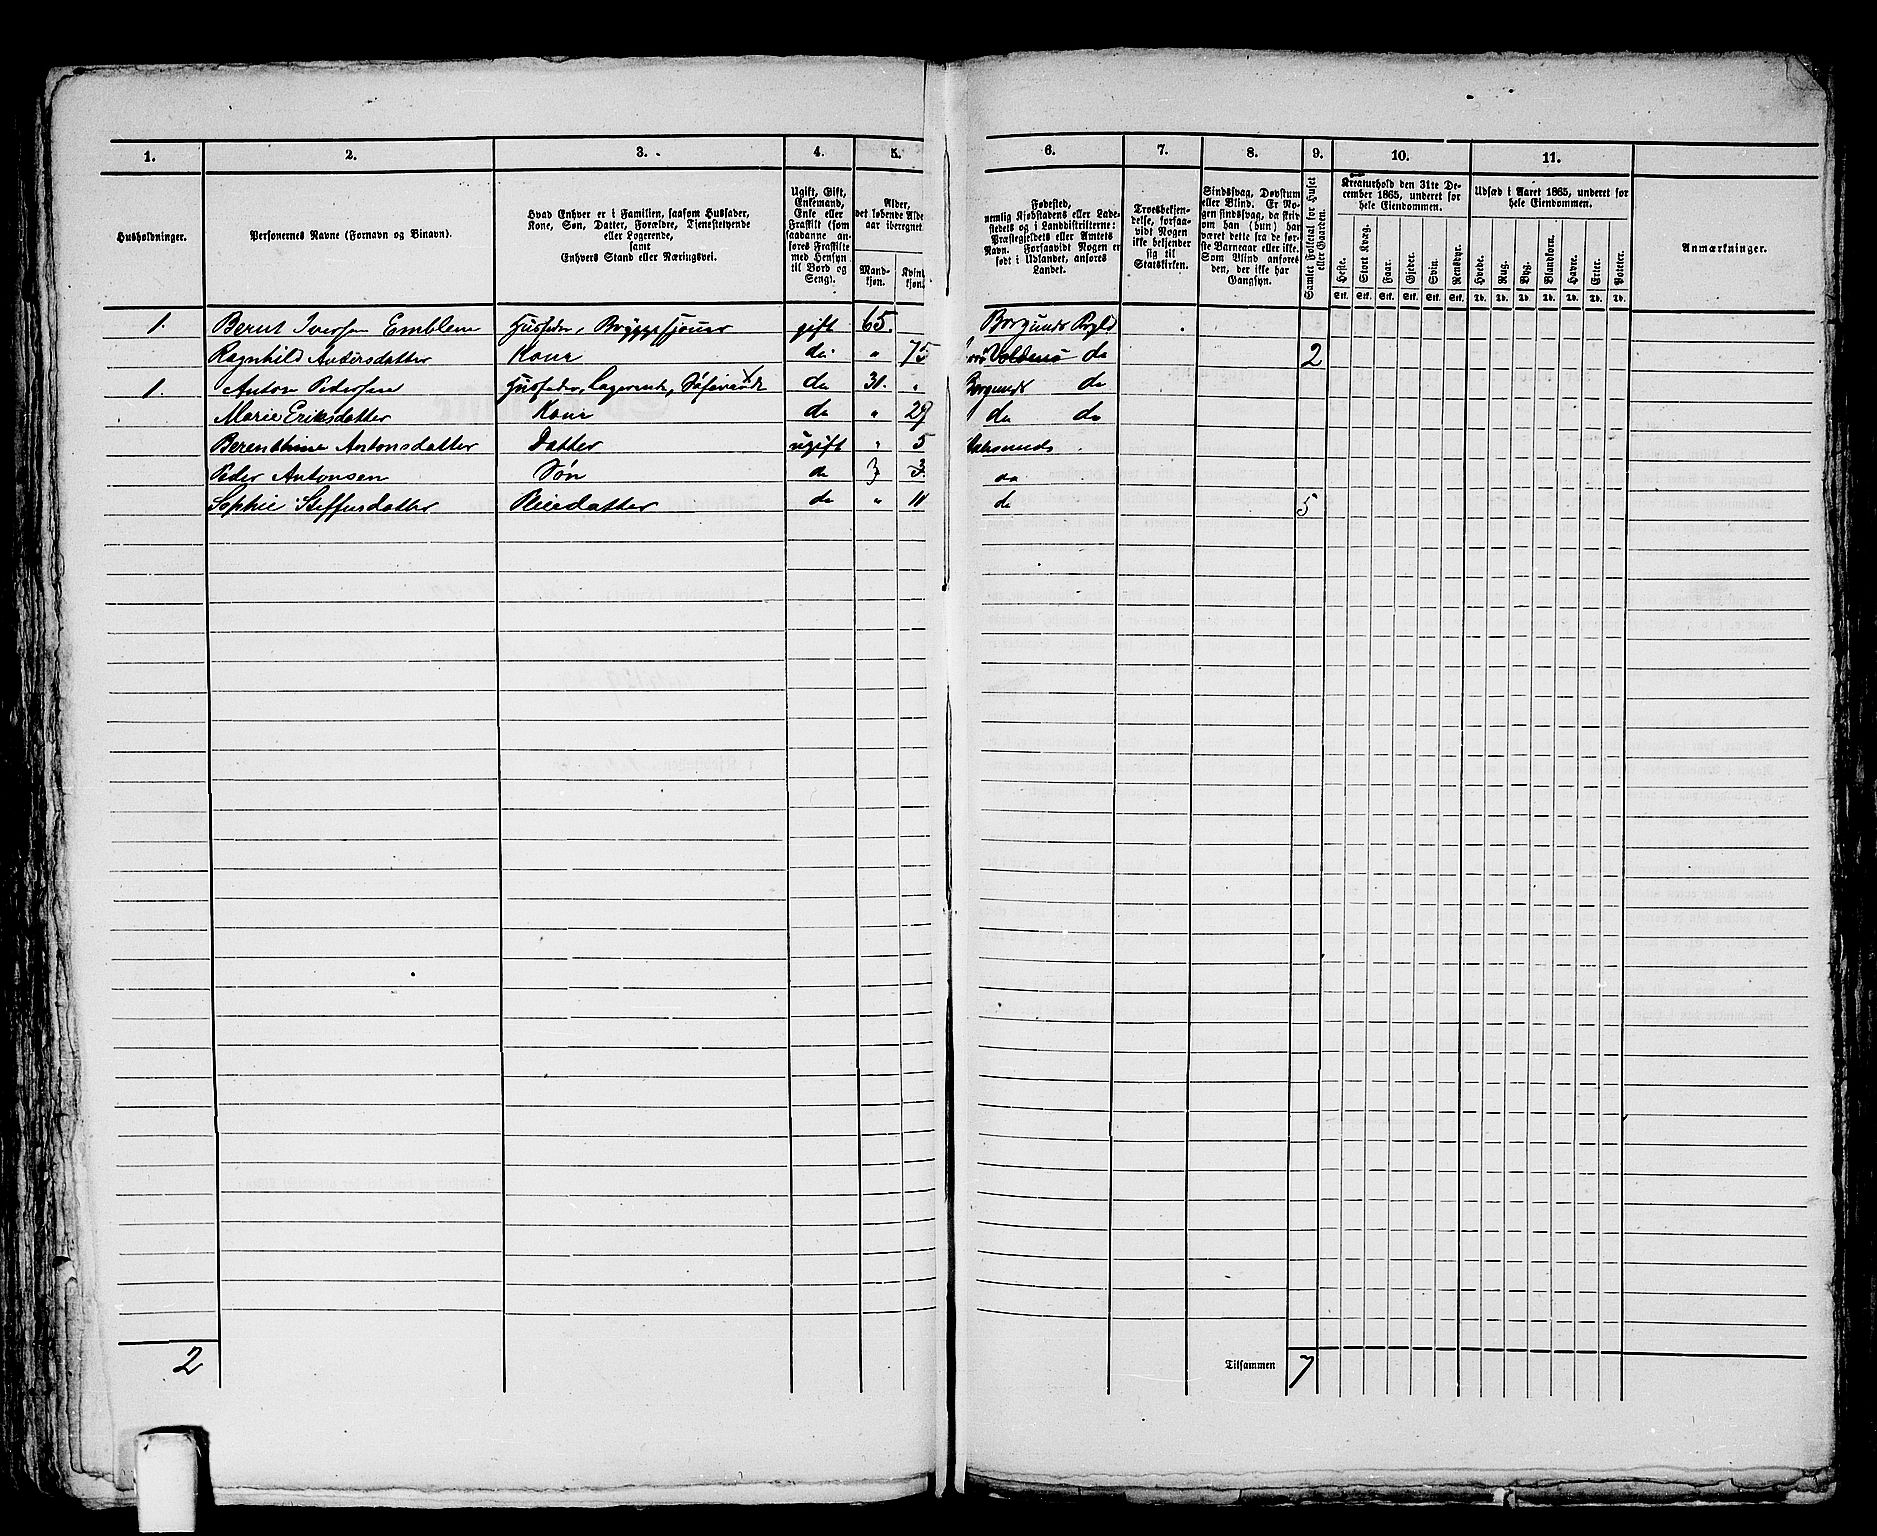 1. 2. 3. 4. 5. 6. 7. 8. 9. 10. 11.
Husholdninger.
Personernes Navne (Fornavn og Binavn).
Hvad Enhver er i Familien, saasom Husfader,
Kone, Søn, Datter, Forældre, Tjenestetyende
eller Logerende,
samt
Enhvers Stand eller Næringsvei.
Ugift, Gift,
Enkemand,
Enke eller
Fraskilt (som
saadanne an-
føres Fraskilte
med Hensyn
til Bord og
Seng).
Alder,
det løbende Alders-
aar iberegnet.
Mand-
kjøn.
Kvind-
kjøn.
Fødested,
nemlig Kjøbstadens eller Lade-
stedets og i Landdistrikterne:
Præstegjeldets eller Amtets
Navn. Forsaavidt Nogen er
født i Udlandet, anføres
Landet.
Troesbekjen-
delse, forsaa-
vidt Nogen
ikke bekjender
sig til
Statskirken.
Sindssvag, Døvstum
eller Blind. Er No-
gen sindssvag, da skriv
om han (hun) har
været dette fra de før-
ste Barneaar eller ikke.
Som Blind anføres
den, der ikke har
Gangsyn.
Samlet Folketal for Huset
eller Gaarden.
Kreaturhold den 31te De-
cember 1865, underet for
hele Eiendommen.
Heste. Stort Kvæg. Faar. Gjeder. Svin. Rensdyr.
Stk. Stk. Stk. Stk. Stk. Stk.
Udsæd i Aaret 1865, underet for
hele Eiendommen.
Hvede. Rug. Byg. Blandkorn. Havre. Erter. Poteter.
Td. Td. Td. Td. Td. Td. Td.
Anmærkninger.
1. Bernt Iversen Emblem Husfader, Bryggesjouer gift 65. Borgunds Prgld
Ragnhild Andersdatter Kone do " 75 Voldens do 2
1. Anton Pedersen Husfader, Logerende, Søfarende do 31. " Borgunds do
Marie Eriksdatter Kone do " 29 do do
Berenthine Antonsdatter Datter ugift " 5
Peder Antonsen Søn do 3 3 do
Sophie Steffensdatter Pleiedatter do " 11 do 5
2 Tilsammen 7